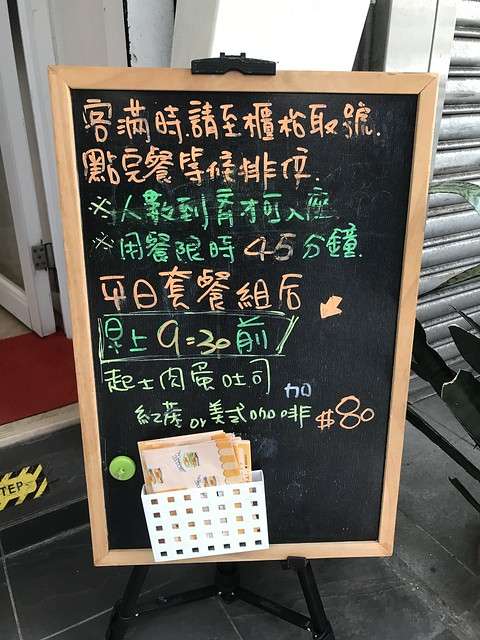 客滿時.請至櫃枱取號.
點完餐等候排位.
※人數到齊才可入座
※用餐限時45分鐘.
平日套餐組合
早上9:30前
起士肉蛋吐司 加
紅茶 or 美式咖啡 $80
TEP